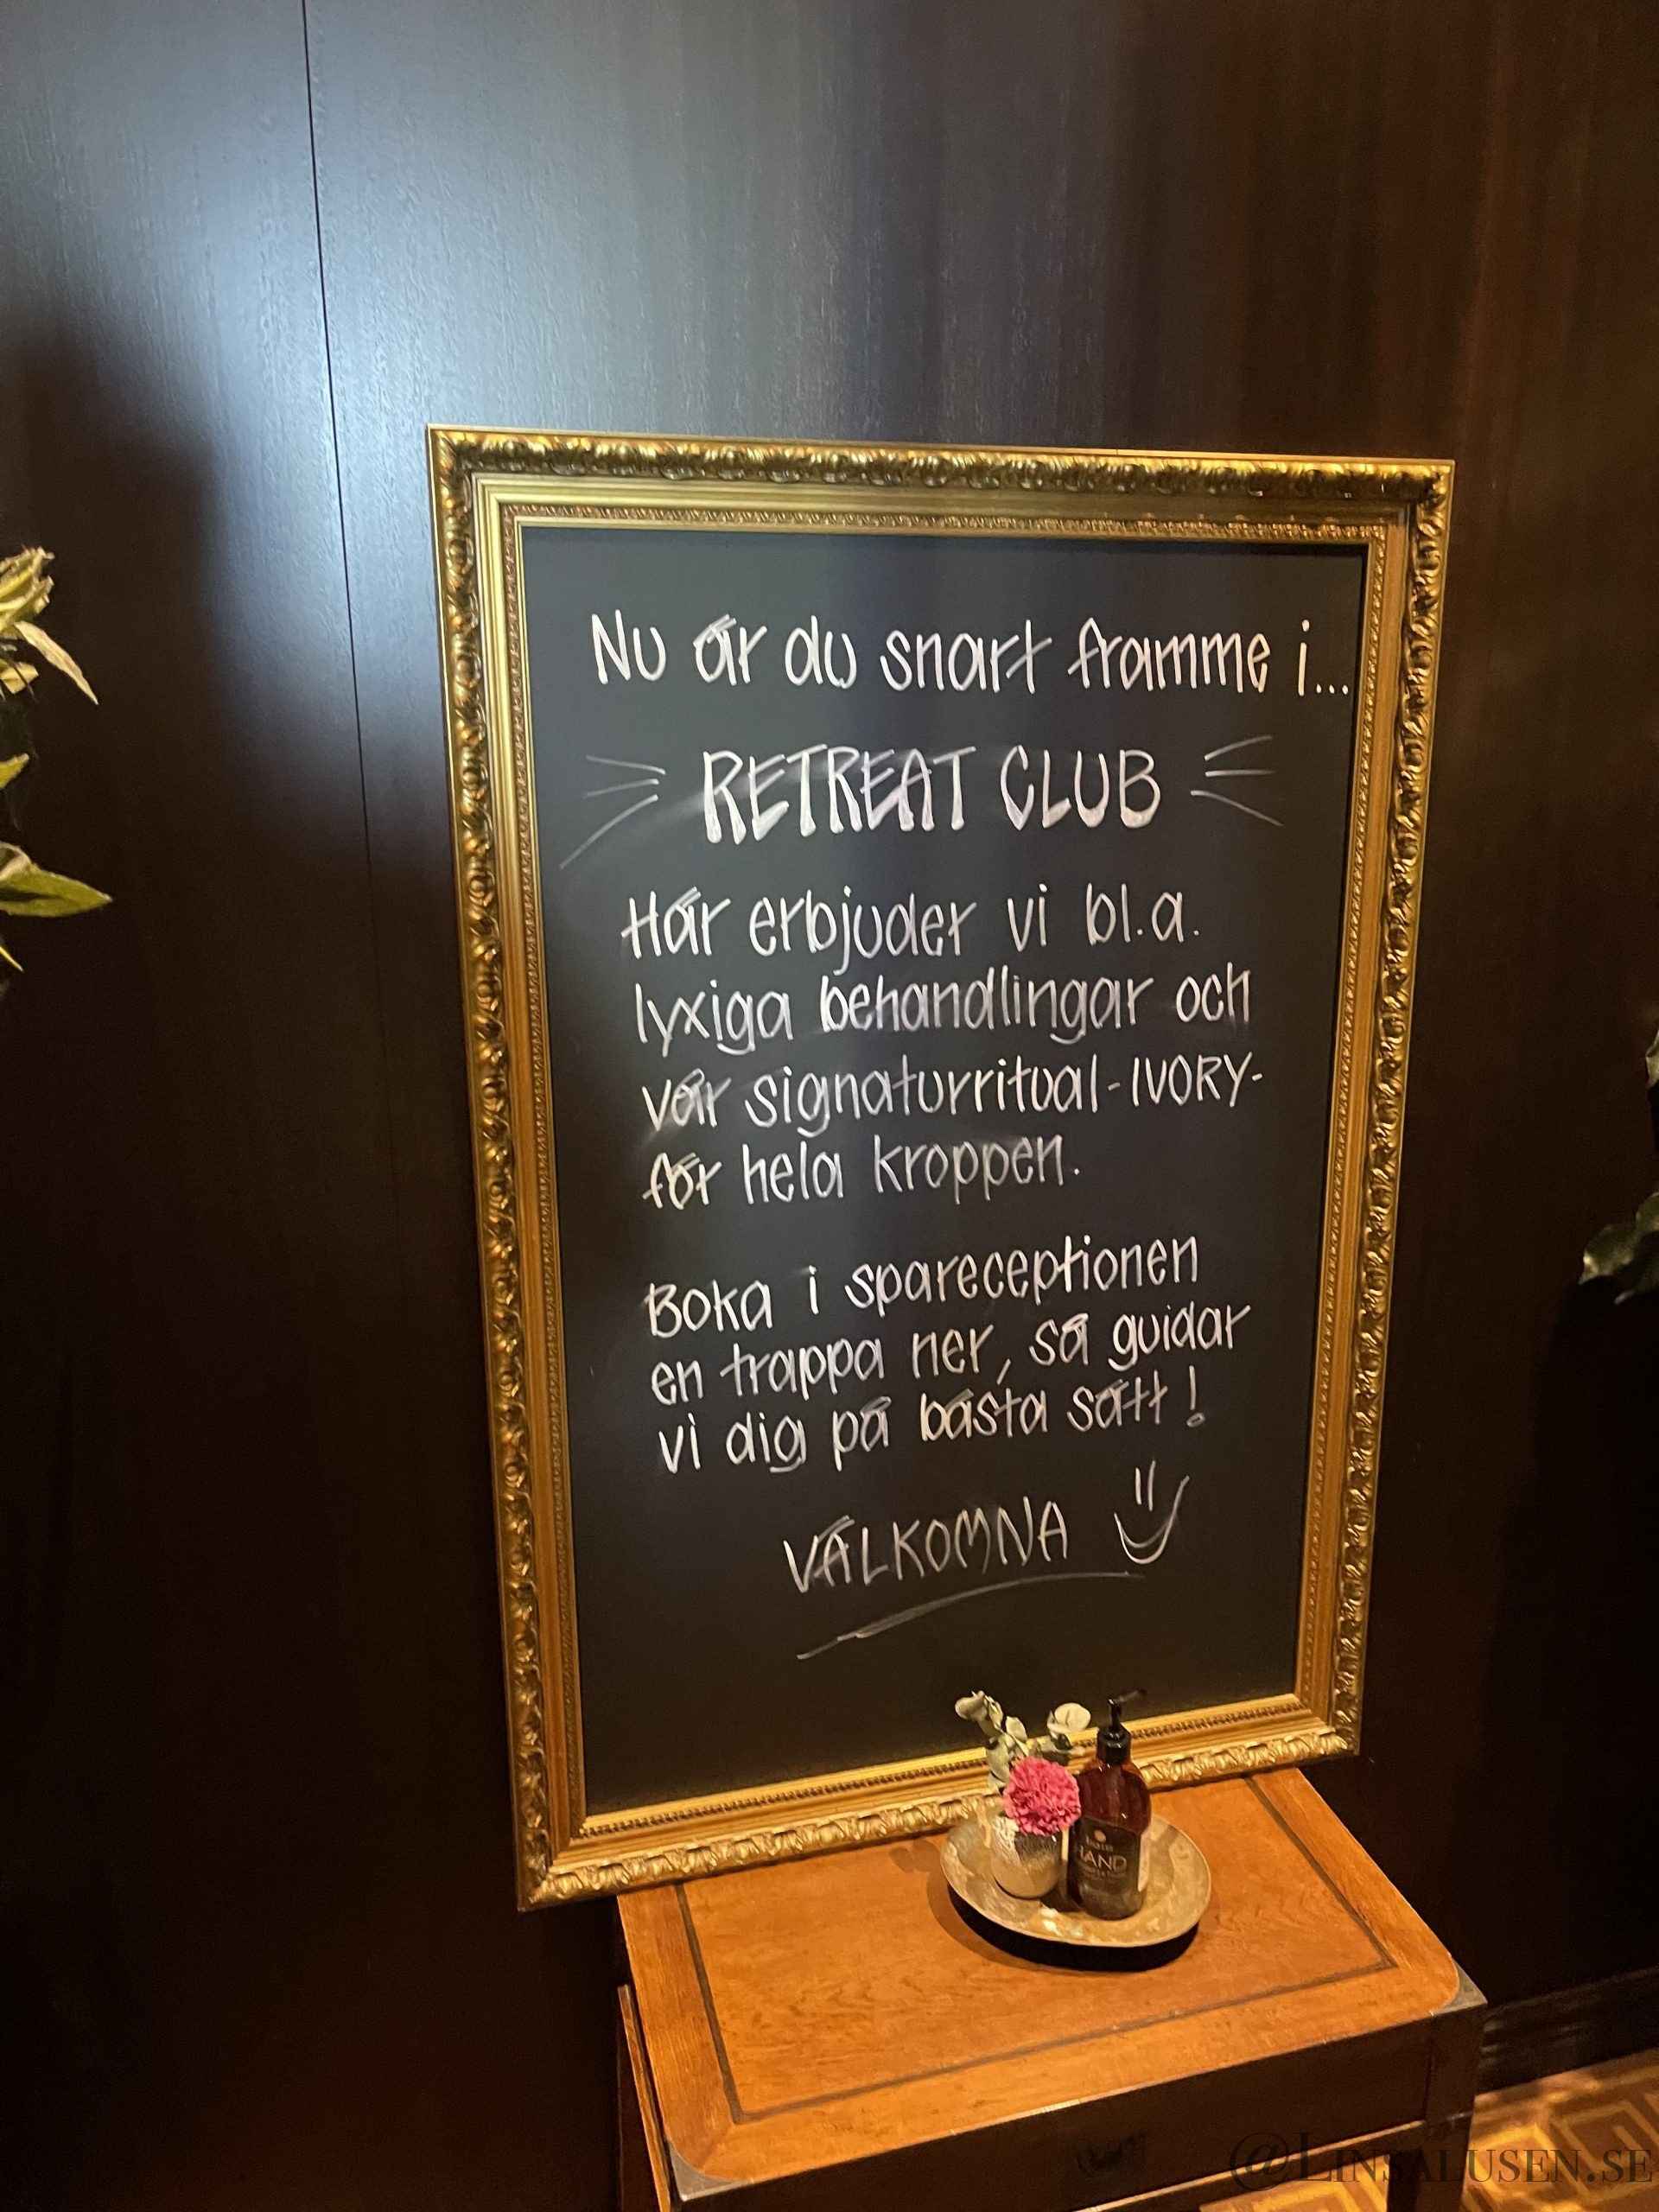 Nu är du snart framme i...
RETREAT CLUB
Här erbjuder vi bl.a.
lyxiga behandlingar och
vår signaturritual-IVORY-
för hela kroppen.
Boka i spareceptionen
en trappa ner, så guidar
vi dig på bästa sätt!
VÄLKOMNA
HAND
@LINSALUSEN.SE